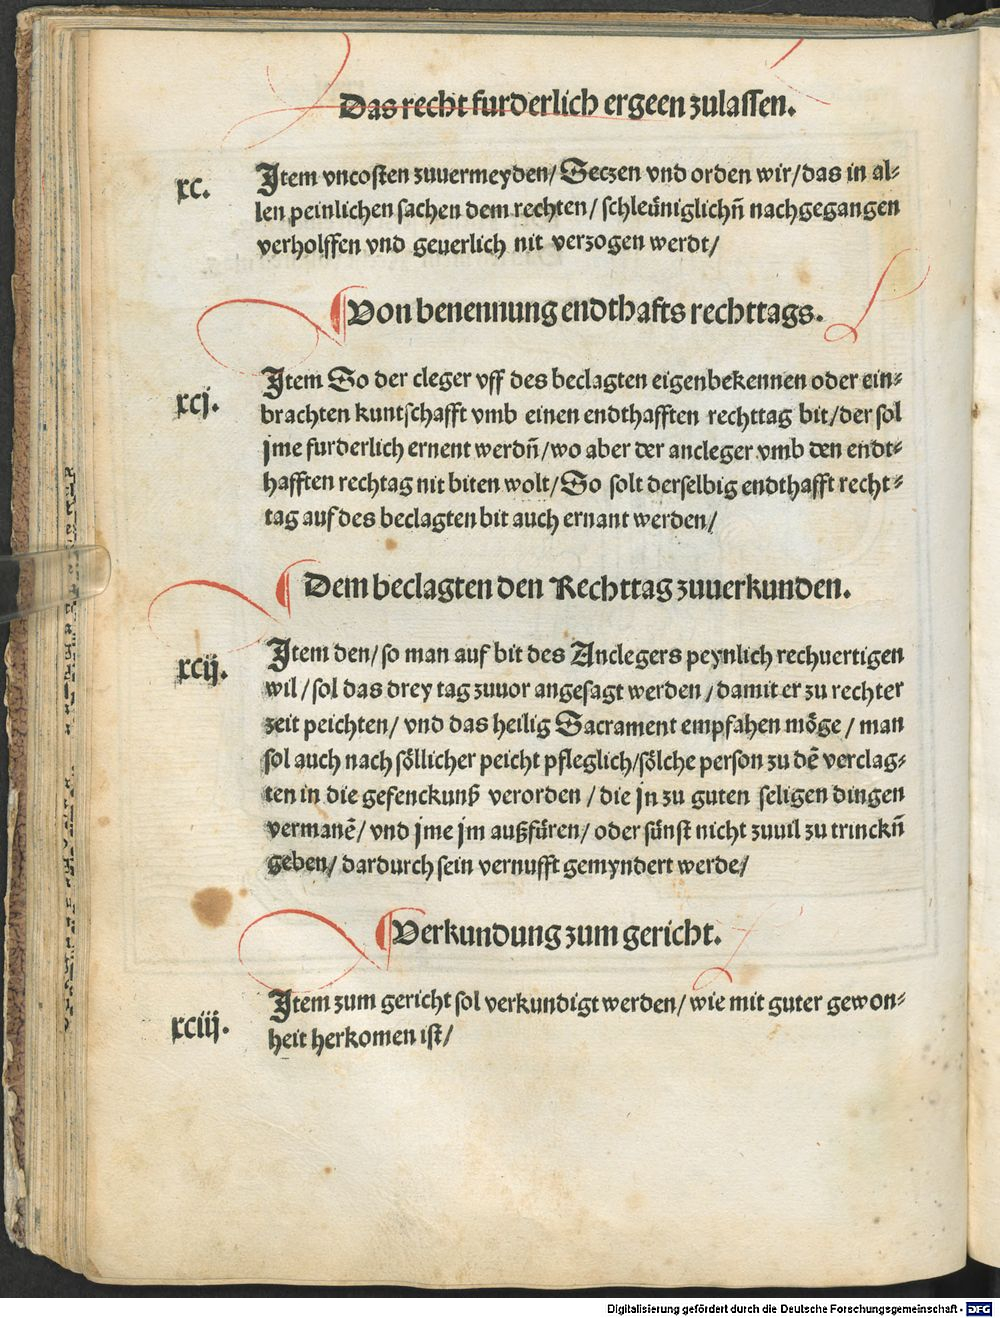 Das recht furderlich ergeen zulassen.
xc. Item vncosten zuuermeyden/ Seczen vnd orden wir/das in al⸗
len peinlichen sachen dem rechten/ schleüniglichñ nachgegangen
verholffen vnd geuerlich nit verzogen werdt/
¶Von benennung endthafts rechttags.
xcj. Item So der cleger vff des beclagten eigenbekennen oder ein⸗
brachten kuntschafft vmb einen endthafften rechttag bit/der sol
jme furderlich ernent werdñ/wo aber der ancleger vmb den endt⸗
hafften rechtag nit biten wolt/So solt derselbig endthafft recht⸗
tag auf des beclagten bit auch ernant werden/
¶Dem beclagten den Rechttag zuuerkunden.
xcij. Item den/so man auf bit des Anclegers peynlich rechuertigen
wil/sol das drey tag zuuor angesagt werden/damit er zu rechter
zeit peichten/ vnd das heilig Sacrament empfahen möge/ man
sol auch nach söllicher peicht pfleglich/sölche person zu dē verclag⸗
ten in die gefenckunß verorden/die jn zu guten seligen dingen
vermanē/ vnd jme jm außfüren/ oder sünst nicht zuuil zu trinckñ
geben/ dardurch sein vernufft gemyndert werde/
¶Verkundung zum gericht.
xciij. Item zum gericht sol verkundigt werden/ wie mit guter gewon⸗
heit herkomen ist/
Digitalisierung gefördert durch die Deutsche Forschungsgemeinschaft - DFG